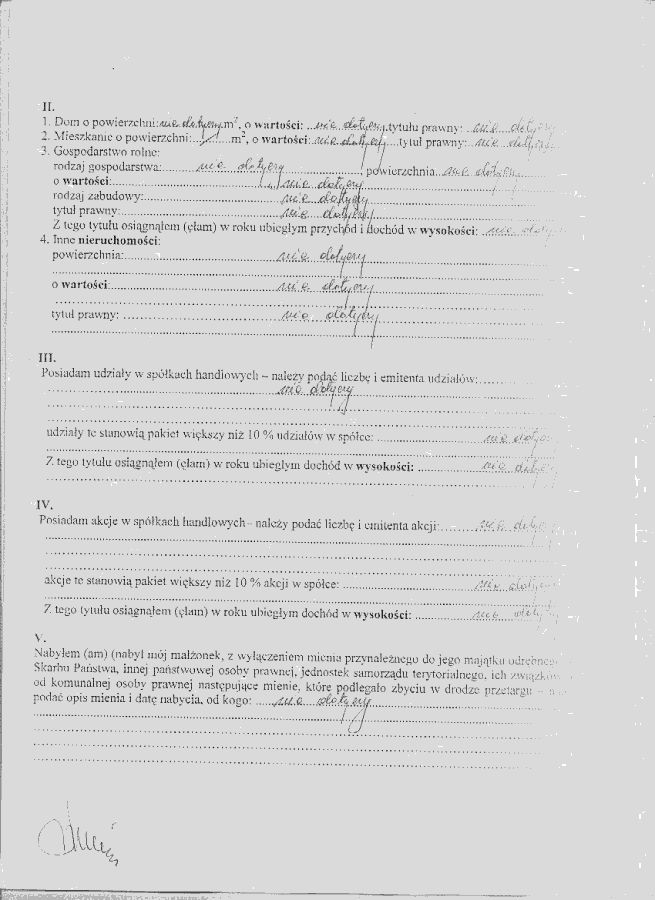 II.
1. Dom o powierzchni: nie dotyczy m², o wartości: nie dotyczy tytułu prawny: nie dotyczy
2. Mieszkanie o powierzchni: m², o wartości: nie dotyczy tytuł prawny: nie dotyczy
3. Gospodarstwo rolne:
rodzaj gospodarstwa: nie dotyczy, powierzchnia nie dotyczy
o wartości: nie dotyczy
rodzaj zabudowy: nie dotyczy
tytuł prawny: nie dotyczy
Z tego tytułu osiągnąłem (ęłam) w roku ubiegłym przychód i dochód w wysokości: nie dotyczy
4. Inne nieruchomości:
powierzchnia: nie dotyczy
o wartości: nie dotyczy
tytuł prawny: nie dotyczy
III.
Posiadam udziały w spółkach handlowych – należy podać liczbę i emitenta udziałów:
nie dotyczy
udziały te stanowią pakiet większy niż 10 % udziałów w spółce: nie dotyczy
Z tego tytułu osiągnąłem (ęłam) w roku ubiegłym dochód w wysokości: nie dotyczy
IV.
Posiadam akcje w spółkach handlowych – należy podać liczbę i emitenta akcji: nie dotyczy
akcje te stanowią pakiet większy niż 10 % akcji w spółce: nie dotyczy
Z tego tytułu osiągnąłem (ęłam) w roku ubiegłym dochód w wysokości: nie dotyczy
V.
Nabyłem (am) (nabył mój małżonek, z wyłączeniem mienia przynależnego do jego majątku
Skarbu Państwa, innej państwowej osoby prawnej, jednostek samorządu terytorialnego, ich
od komunalnej osoby prawnej następujące mienie, które podlegało zbyciu w drodze przetargu –
podać opis mienia i datę nabycia, od kogo: nie dotyczy